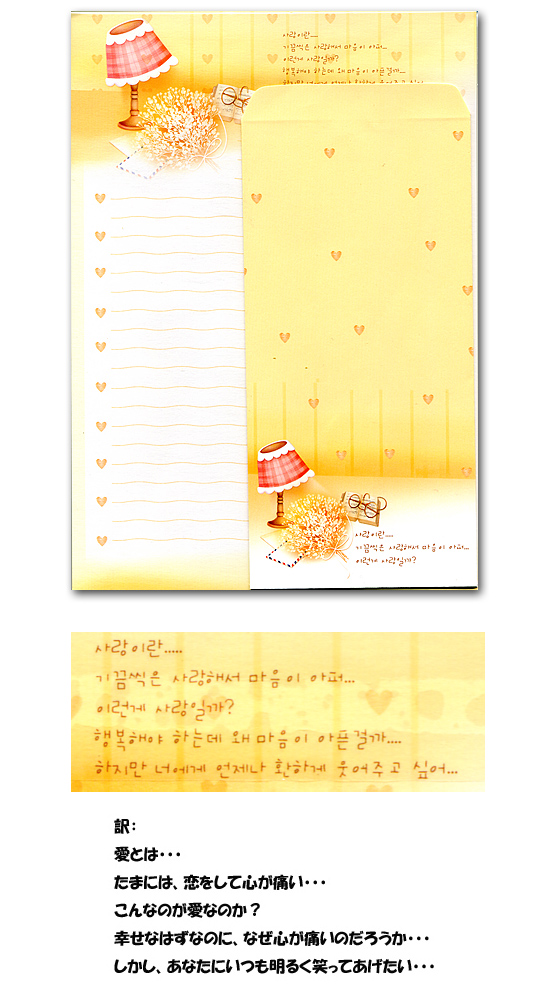 사랑이란....
가끔씩은 사랑해서 마음이 아퍼...
이런게 사랑일까?
행복해야 하는데 왜 마음이 아픈걸까....
사랑이란....
가끔씩은 사랑해서 마음이 아퍼...
이런게 사랑일까?
사랑이란.....
가끔씩은 사랑해서 마음이 아퍼...
이런게 사랑일까?
행복해야 하는데 왜 마음이 아픈걸까....
하지만 너에게 언제나 환하게 웃어주고 싶어...
訳：
愛とは・・・
たまには、恋をして心が痛い・・・
こんなのが愛なのか？
幸せなはずなのに、なぜ心が痛いのだろうか・・・
しかし、あなたにいつも明るく笑ってあげたい・・・